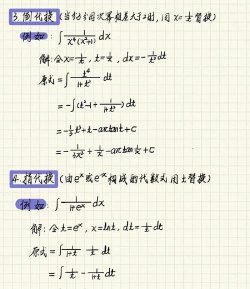 3. 倒代换 (当分母次幂较高大于2时,用 x=1/t 替换)
例如: ∫ 1/(x⁴(x²+1)) dx
解:令x=1/t, t=1/x, dx=-1/t² dt
原式=∫ t⁴/(1+t²) dt
=-∫(t²-1+1/(1+t²)) dt
=-1/3 t³+t-arctant+C
=-1/(3x³)+1/x-arctan1/x+C
4. 指代换 (由eˣ或e⁻ˣ构成的代数式用t替换)
例如: ∫ 1/(1+eˣ) dx
解:令t=eˣ, x=lnt, dt=1/t dt
原式=∫ 1/(1+t) 1/t dt
=∫ 1/t - 1/(1+t) dt